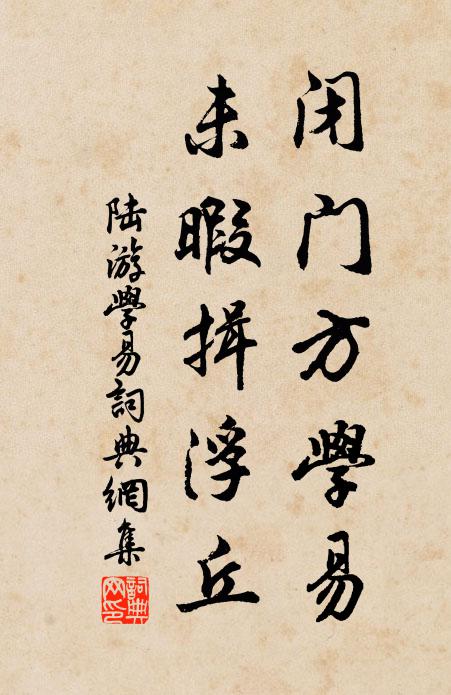 闭门方學易
未暇揖浮丘
陆游學易詞典網集
詞典网印